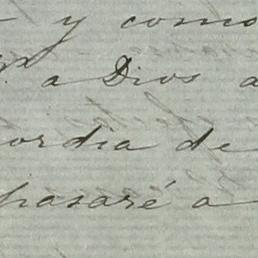 y como
a Dios a
ordia de
pasaré a